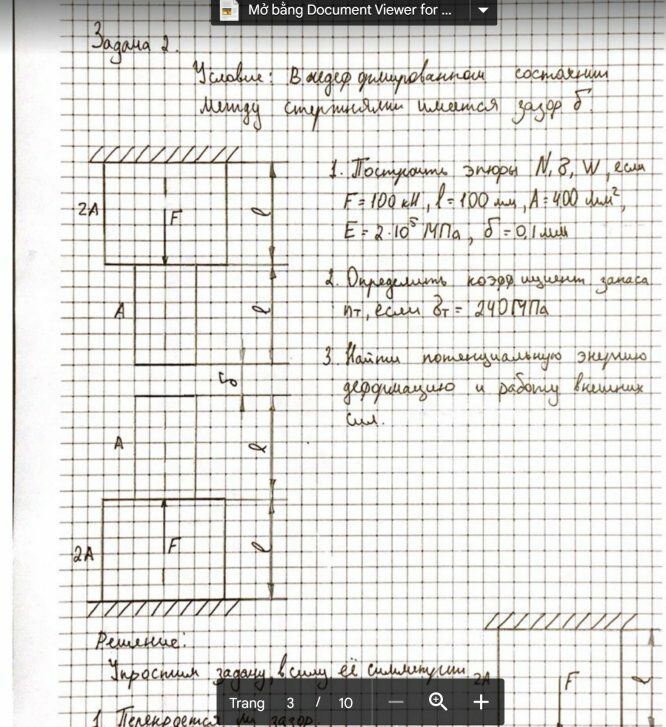 Mở bằng Document Viewer for ...
Задача 2.
Условие: В недеформированном состоянии
между стержнями имеется зазор δ.
1. Построить эпюры N, σ, W, если
F = 100 кН, l = 100 мм, A = 400 мм²,
E = 2·10⁵ МПа, δ = 0,1 мм
2. Определить коэффициент запаса
nт, если σт = 240 МПа
3. Найти потенциальную энергию
деформацию и работу внешних
сил.
2A
F
l
A
l
δ
A
l
2A
F
l
Решение:
Упростим задачу, в силу её симметрии
2A
F
l
Trang 3 / 10
1. Перекроется ли зазор.